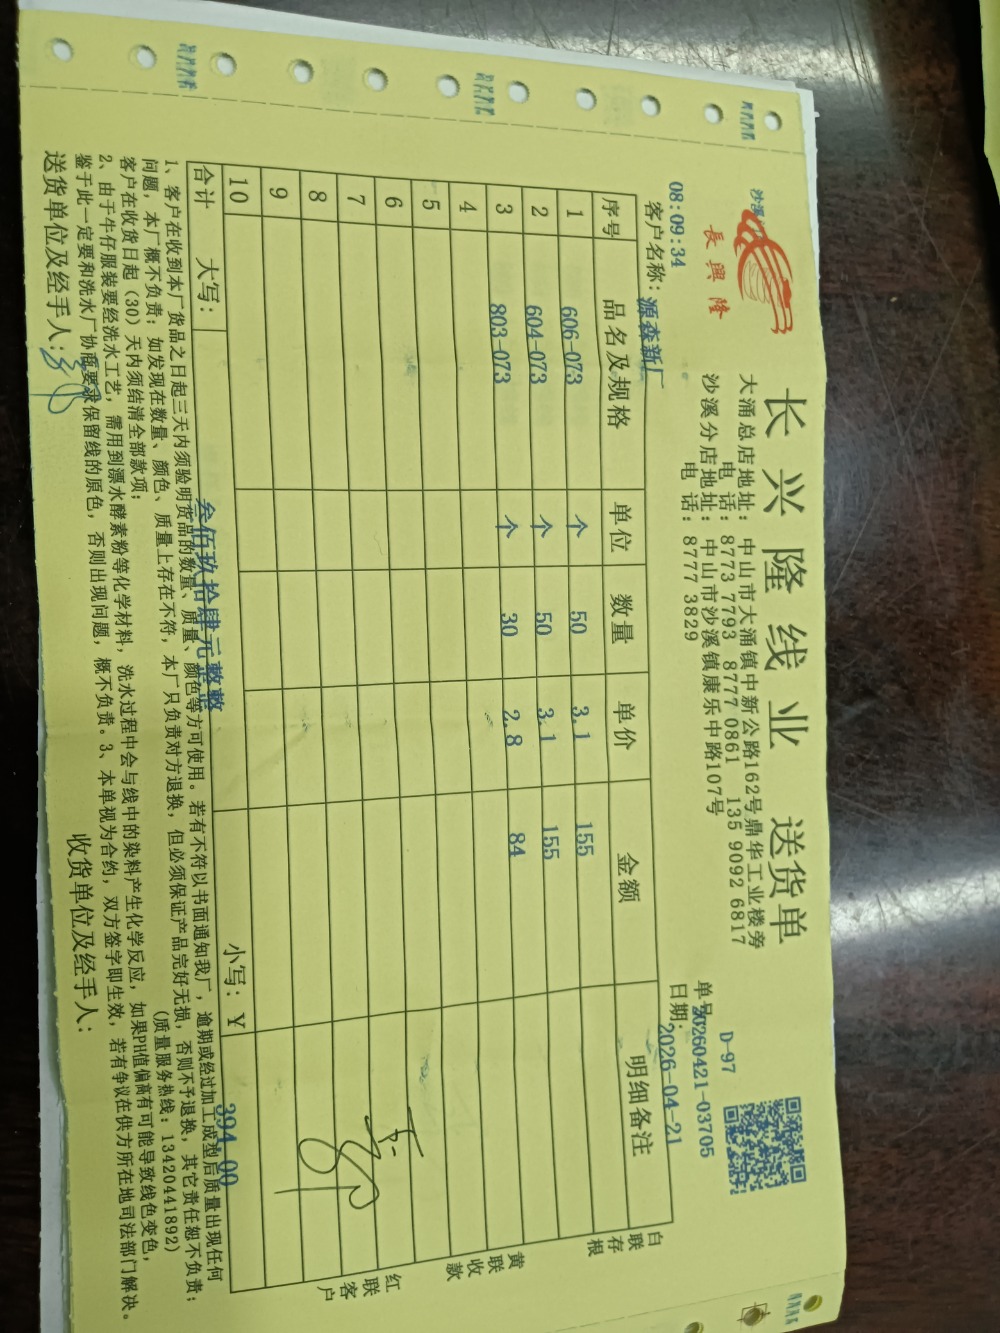 長興隆
长兴隆线业 送货单
大涌总店地址：中山市大涌镇中新公路162号鼎华工业楼旁
电 话：8773 7793 8777 0861 135 9092 6817
沙溪分店地址：中山市沙溪镇康乐中路107号
电 话：8777 3829
D-97
单号 20260421-03705
日期：2026-04-21
08:09:34
客户名称：源森新厂
序号 品名及规格 单位 数量 单价 金额 明细备注
1 606-073 个 50 3.1 155
2 604-073 个 50 3.1 155
3 803-073 个 30 2.8 84
4
5
6
7
8
9
10
合计 大写：叁佰玖拾肆元整整 小写：Y 394.00
白联存根
黄联收款
红联客户
1、客户在收到本厂货品之日起三天内须验明货品的数量、质量、颜色等方可使用。若有不符以书面通知我厂，逾期或经过加工成型后质量出现任何
问题，本厂概不负责；如发现在数量、颜色、质量上存在不符，本厂只负责对方退换，但必须保证产品完好无损，否则不予退换，其它责任恕不负责；
客户在收货日起（30）天内须结清全部款项； (质量服务热线：13420441892)
2、由于牛仔服装要经洗水工艺，需用到漂水酵素粉等化学材料，洗水过程中会与线中的染料产生化学反应，如果PH值偏高有可能导致线色变色，
鉴于此一定要和洗水厂协商要求保留线的原色，否则出现问题，概不负责。3、本单视为合约，双方签字即生效，若有争议在供方所在地司法部门解决。
送货单位及经手人： 收货单位及经手人：